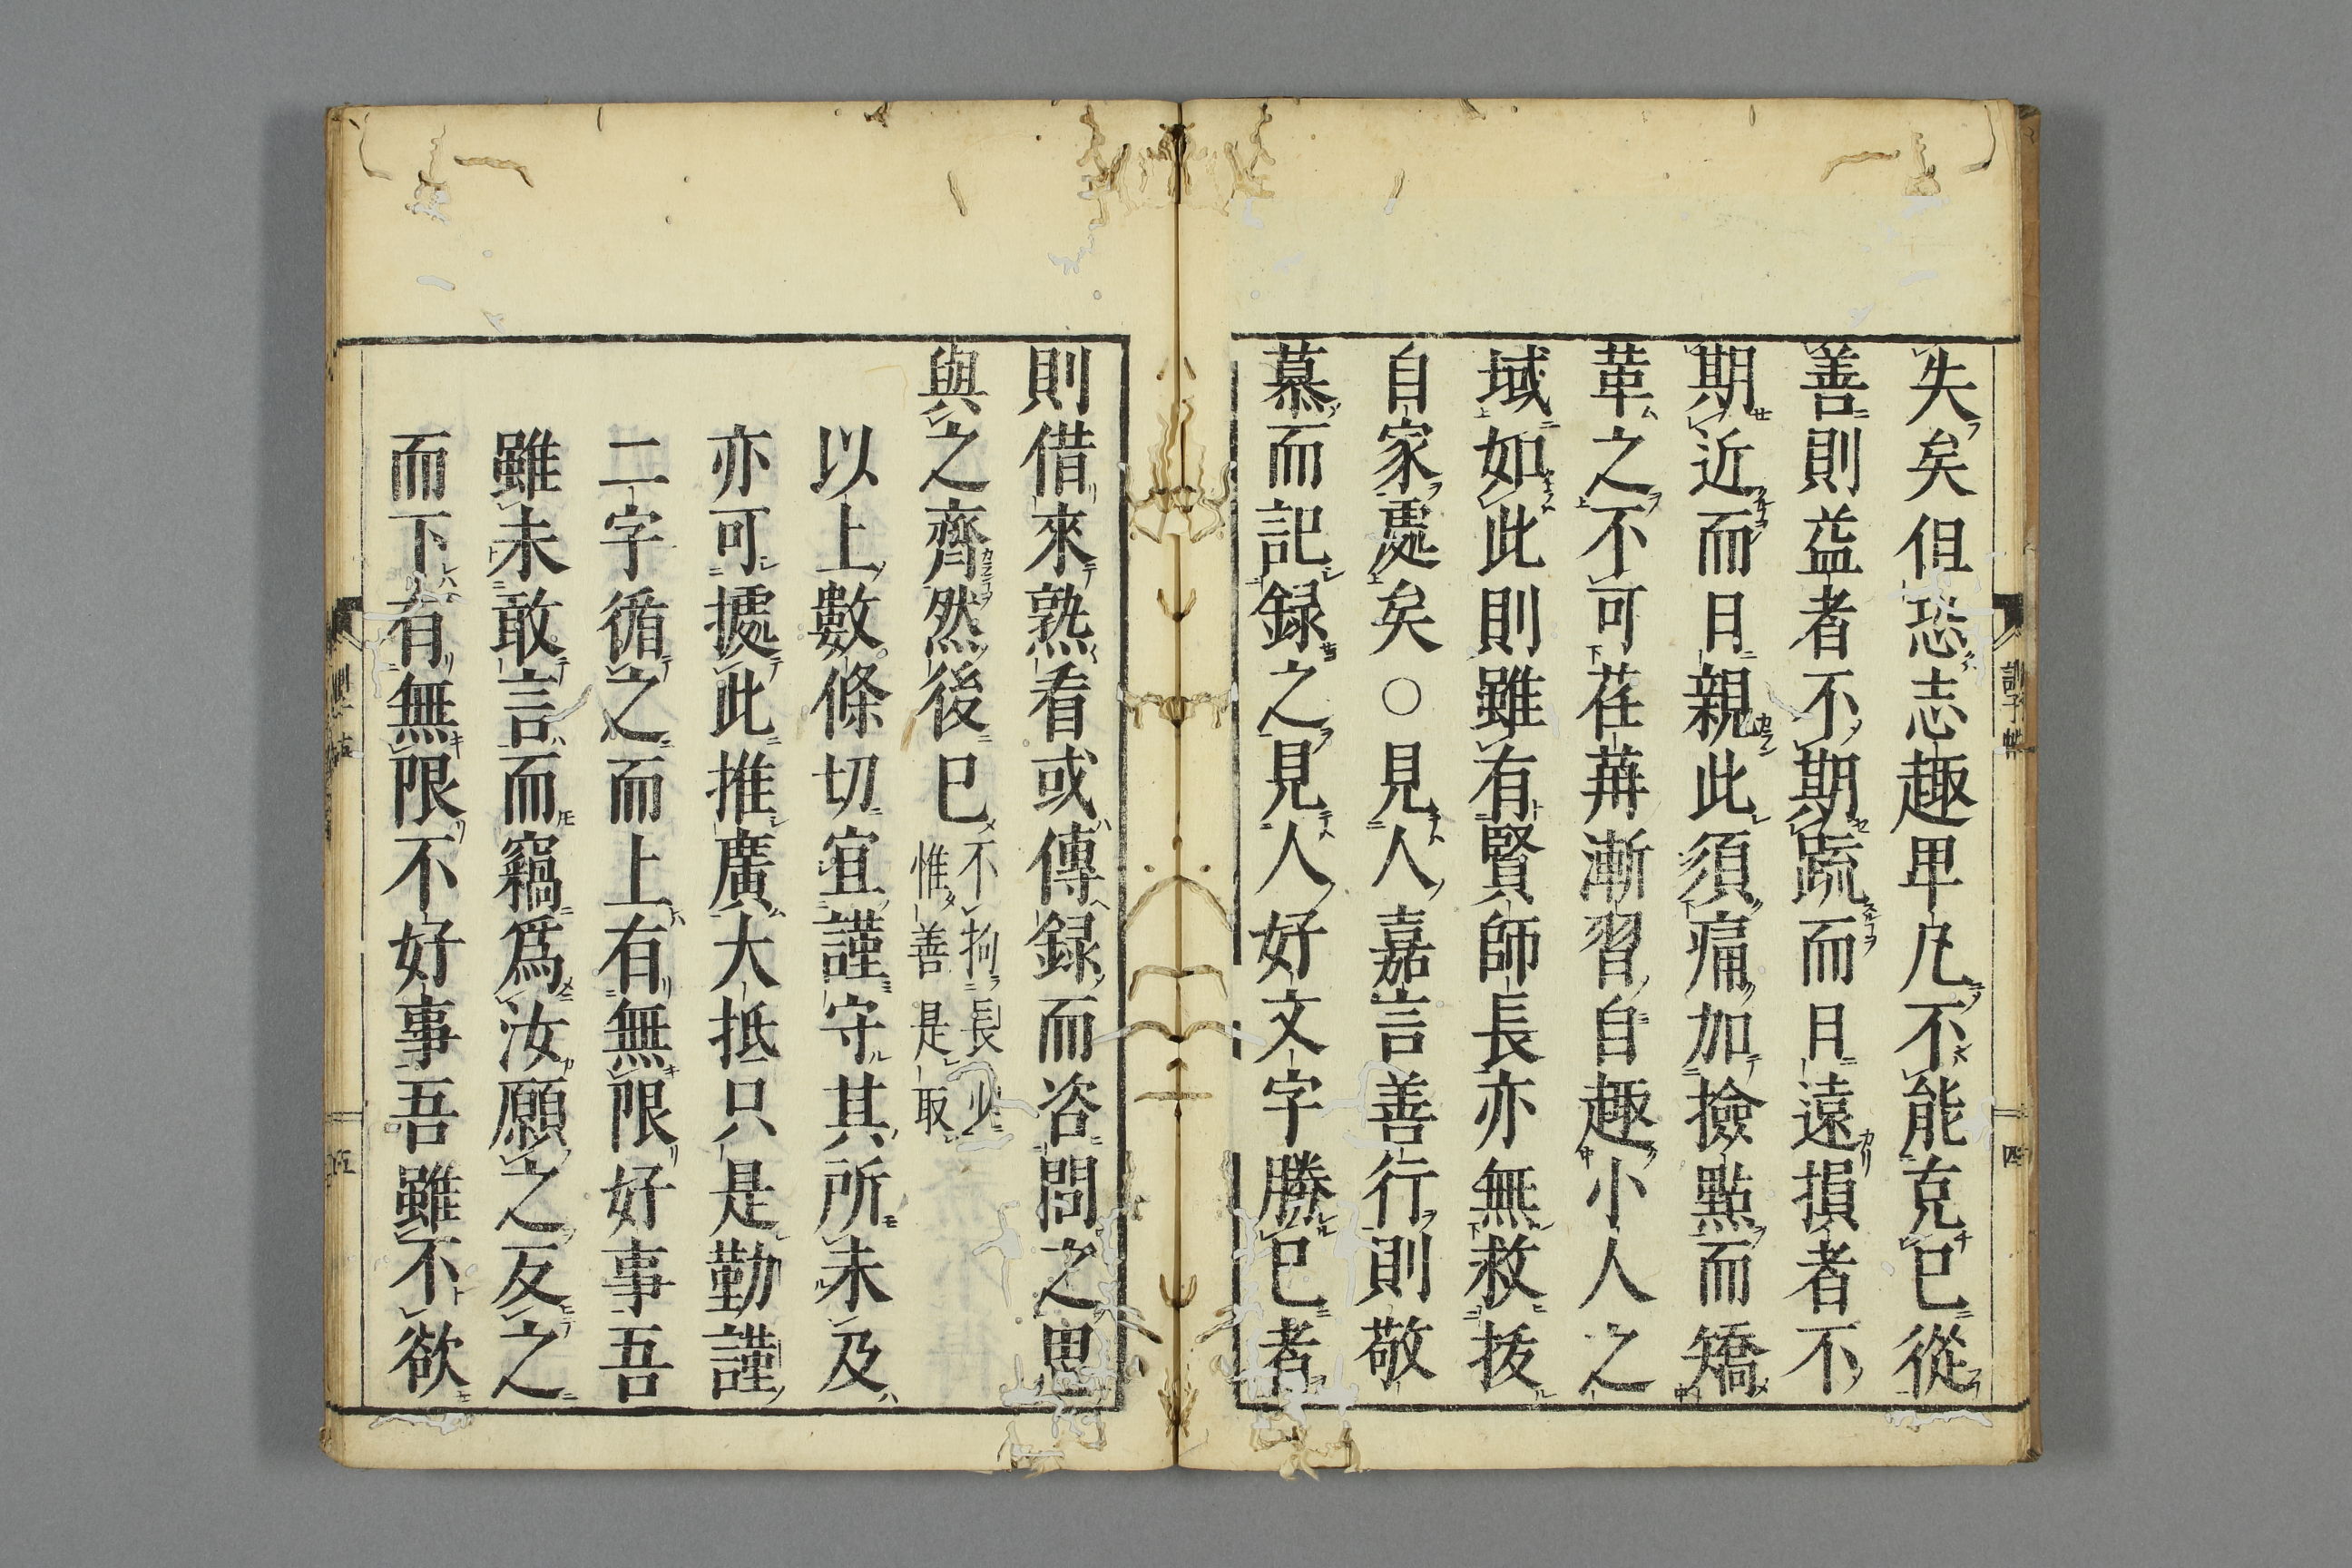 失矣但恐志趣卑凡不能克已從
善則益者不期疏而日遠損者不
期近而日親此須痛加撿點而矯
革之不可荏苒漸習自趣小人之
域如此則雖有賢師長亦無救拔
自家處矣○見人嘉言善行則敬
慕而記録之見人好文字勝已者
則借來熟看或傳録而咨問之思
與之齊然後已不拘長少
惟善是取
以上數條切宜謹守其所未及
亦可據此推廣大抵只是勤謹
二字循之而上有無限好事吾
雖未敢言而竊爲汝願之反之
而下有無限不好事吾雖不欲
訓子帖
四
五